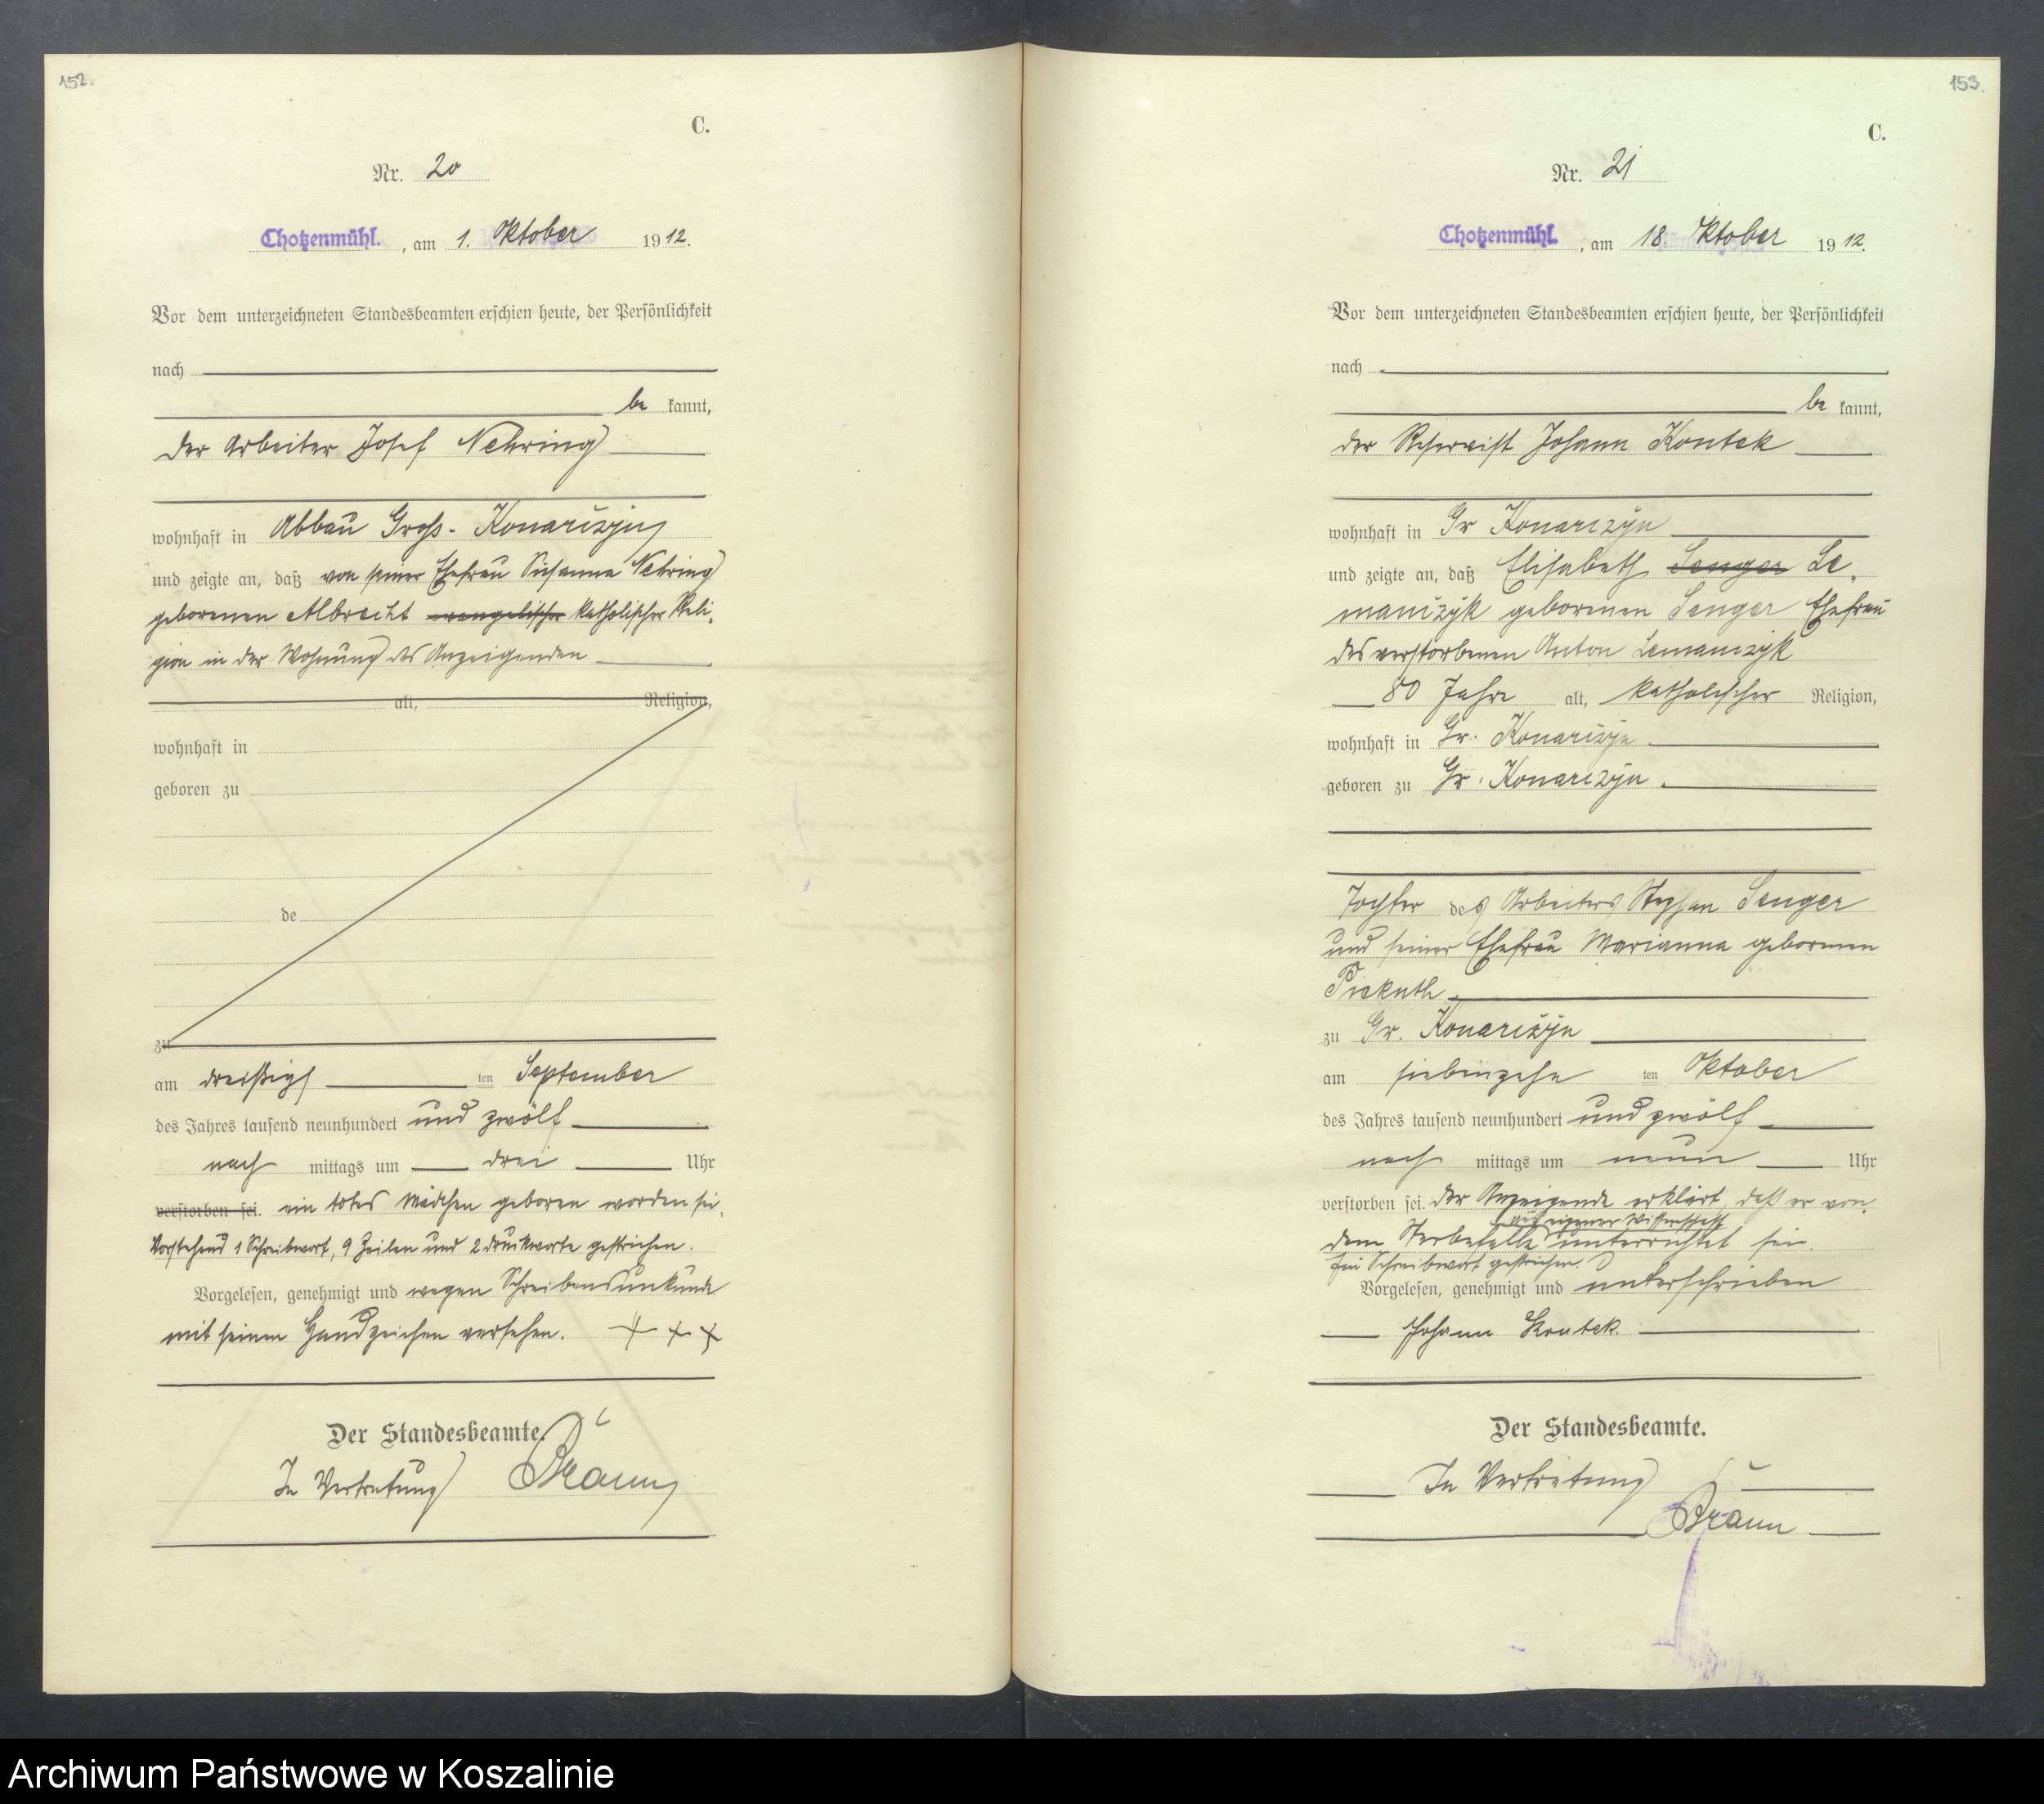 152.
C.
Nr. 20
Chotzenmühl. , am 1. Oktober 1912.
Vor dem unterzeichneten Standesbeamten erschien heute, der Persönlichkeit
nach
be kannt,
der Arbeiter Josef Nehring
wohnhaft in Abbau Groß-Konarczyn
und zeigte an, daß von seiner Ehefrau Susanna Nehring
geborenen Albrecht evangelischer katholischer Reli-
gion in der Wohnung des Anzeigenden
alt, Religion,
wohnhaft in
geboren zu
de
zu
am dreißigs ten September
des Jahres tausend neunhundert und zwölf
nach mittags um drei Uhr
verstorben sei. ein totes Mädchen geboren worden sei.
Vorstehend 1 Schreibwort, 9 Zeilen und 2 Druckworte gestrichen.
Vorgelesen, genehmigt und wegen Schreibensunkunde
mit seinem Handzeichen versehen. + + +
Der Standesbeamte.
In Vertretung Braun
153.
C.
Nr. 21
Chotzenmühl. , am 18. Oktober 1912.
Vor dem unterzeichneten Standesbeamten erschien heute, der Persönlichkeit
nach
be kannt,
der Reservist Johann Kontek
wohnhaft in Gr Konarczyn
und zeigte an, daß Elisabeth Senger Le-
manczyk geborenen Senger Ehefrau
des verstorbenen Anton Lemanczyk
80 Jahre alt, katholischer Religion,
wohnhaft in Gr. Konarczyn
geboren zu Gr. Konarczyn.
Tochter des Arbeiters Stephan Senger
und seiner Ehefrau Marianna geborenen
Piekuth
zu Gr. Konarczyn
am siebenzehn ten Oktober
des Jahres tausend neunhundert und zwölf
nach mittags um neun Uhr
verstorben sei. Der Anzeigende erklärt, daß er von
aus eigener Wissenschaft
dem Sterbefalle unterrichtet sei.
Ein Schreibwort gestrichen.
Vorgelesen, genehmigt und unterschrieben
Johann Kontek.
Der Standesbeamte.
In Vertretung
Braun
Archiwum Państwowe w Koszalinie